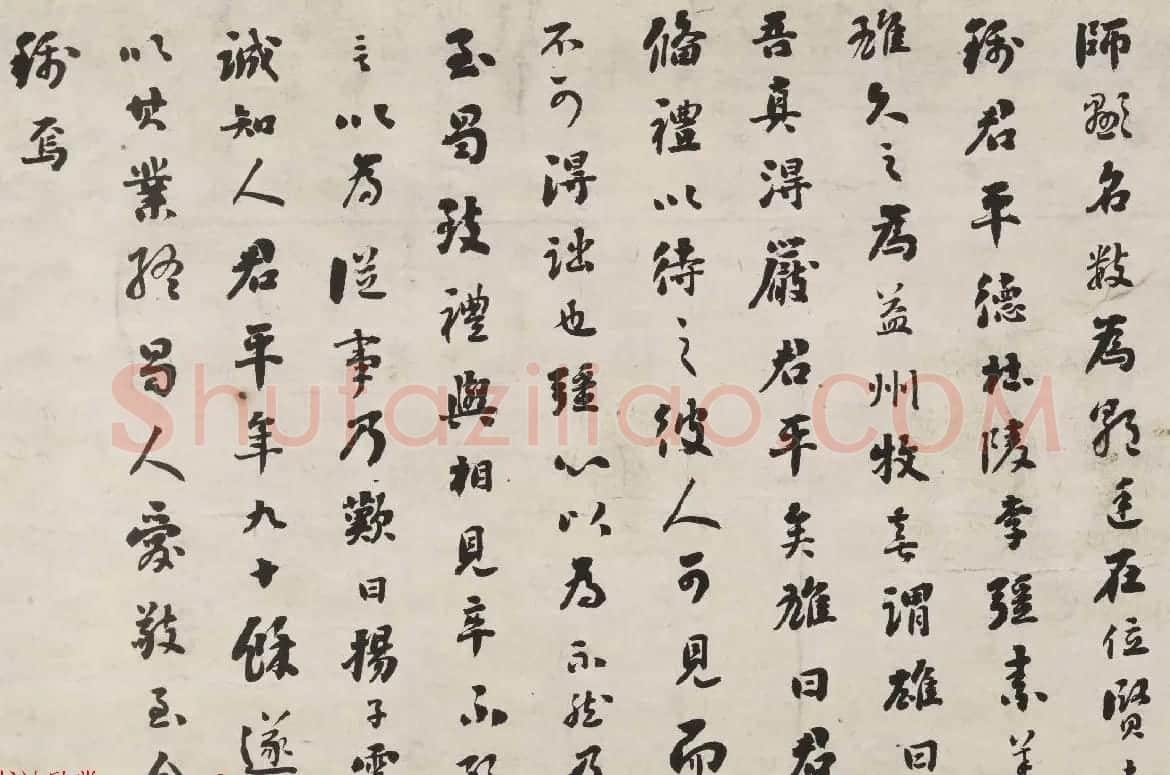 師顯名數為朝廷在位賢
稱君平德杜陵李彊素善
雄久之為益州牧喜謂雄曰
吾真得嚴君平矣雄曰君
備禮以待之彼人可見而
不可得詘也彊心以為不然乃
至蜀致禮與相見卒不敢
言以為從事乃歎曰揚子雲
誠知人君平年九十餘遂
以其業終蜀人愛敬至今
稱焉
Shufaziliao.COM